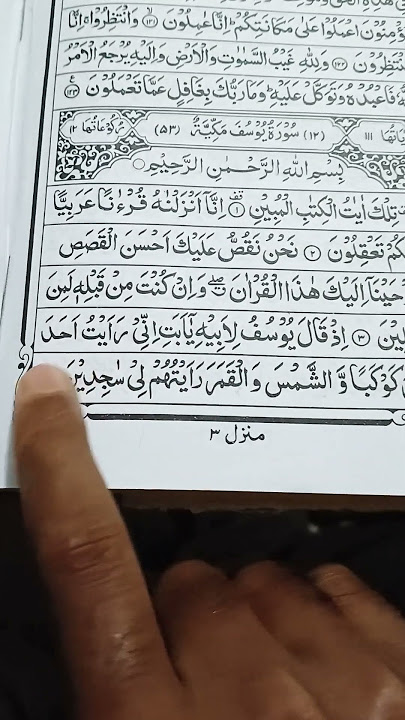 ؤمنون اعملوا على مكانتكم ؕ انا عملون ﴿۱۲۱﴾ وانتظروا ۚ انا
نتظرون ﴿۱۲۲﴾ ولله غيب السموت والارض واليه يرجع الامر
فاعبده وتوكل عليه ؕ وما ربك بغافل عما تعملون ﴿۱۲۳﴾
۱۱۱ (۱۲) سورة يوسف مكية (۵۳) ركوعاتها ۱۲
بِسْمِ اللهِ الرَّحْمٰنِ الرَّحِيْمِ
تِلْكَ اٰيٰتُ الْكِتٰبِ الْمُبِيْنِ ﴿۱﴾ اِنَّاۤ اَنْزَلْنٰهُ قُرْءٰنًا عَرَبِيًّا
كُمْ تَعْقِلُوْنَ ﴿۲﴾ نَحْنُ نَقُصُّ عَلَيْكَ اَحْسَنَ الْقَصَصِ
حَيْنَاۤ اِلَيْكَ هٰذَا الْقُرْاٰنَ ۖ وَاِنْ كُنْتَ مِنْ قَبْلِهٖ لَمِنَ
لِيْنَ ﴿۳﴾ اِذْ قَالَ يُوْسُفُ لِاَبِيْهِ يٰۤاَبَتِ اِنِّيْ رَاَيْتُ اَحَدَ
كَوْكَبًا وَّالشَّمْسَ وَالْقَمَرَ رَاَيْتُهُمْ لِيْ سٰجِدِيْنَ
منزل ۳